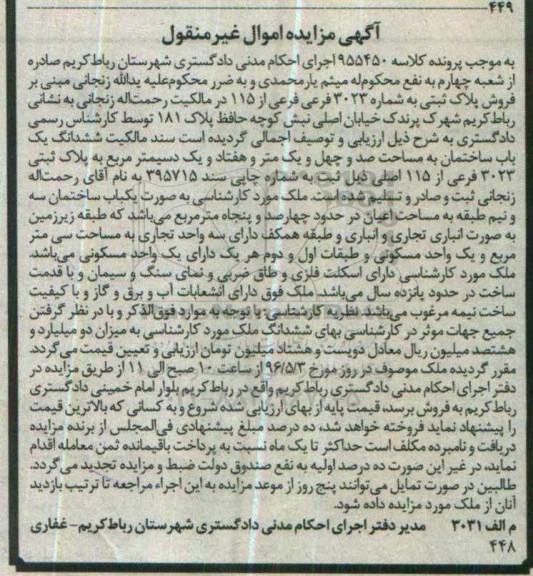 ۴۴۹
آگهی مزایده اموال غیر منقول
به موجب پرونده کلاسه ۹۵۵۴۵۰ اجرای احکام مدنی دادگستری شهرستان رباط‌کریم صادره
از شعبه چهارم به نفع محکوم‌له میثم یارمحمدی و به ضرر محکوم‌علیه یدالله زنجانی مبنی بر
فروش پلاک ثبتی به شماره ۳۰۲۳ فرعی فرعی از ۱۱۵ در مالکیت رحمت‌اله زنجانی به نشانی
رباط‌کریم شهرک پرندک خیابان اصلی نبش کوچه حافظ پلاک ۱۸۱ توسط کارشناس رسمی
دادگستری به شرح ذیل ارزیابی و توصیف اجمالی گردیده است سند مالکیت ششدانگ یک
باب ساختمان به مساحت صد و چهل و یک متر و هفتاد و یک دسیمتر مربع به پلاک ثبتی
۳۰۲۳ فرعی از ۱۱۵ اصلی ذیل ثبت به شماره چاپی سند ۳۹۵۷۱۵ به نام آقای رحمت‌اله
زنجانی ثبت و صادر و تسلیم شده است. ملک مورد کارشناسی به صورت یکباب ساختمان سه
و نیم طبقه به مساحت اعیان در حدود چهارصد و پنجاه مترمربع می‌باشد که طبقه زیرزمین
به صورت انباری تجاری و انباری و طبقه همکف دارای سه واحد تجاری به مساحت سی متر
مربع و یک واحد مسکونی و طبقات اول و دوم هر یک دارای یک واحد مسکونی می‌باشد.
ملک مورد کارشناسی دارای اسکلت فلزی و طاق ضربی و نمای سنگ و سیمان و با قدمت
ساخت در حدود پانزده سال می‌باشد. ملک فوق دارای انشعابات آب و برق و گاز و با کیفیت
ساخت نیمه مرغوب می‌باشد. نظریه کارشناسی: با توجه به موارد فوق‌الذکر و با در نظر گرفتن
جمیع جهات موثر در کارشناسی بهای ششدانگ ملک مورد کارشناسی به میزان دو میلیارد و
هشتصد میلیون ریال معادل دویست و هشتاد میلیون تومان ارزیابی و تعیین قیمت می‌گردد.
مقرر گردیده ملک موصوف در روز مورخ ۹۶/۵/۳ از ساعت ۱۰ صبح الی ۱۱ از طریق مزایده در
دفتر اجرای احکام مدنی دادگستری رباط‌کریم واقع در رباط‌کریم بلوار امام خمینی دادگستری
رباط‌کریم به فروش برسد، قیمت پایه از بهای ارزیابی شده شروع و به کسانی که بالاترین قیمت
را پیشنهاد نماید فروخته خواهد شد، ده درصد مبلغ پیشنهادی فی‌المجلس از برنده مزایده
دریافت و نامبرده مکلف است حداکثر تا یک ماه نسبت به پرداخت باقیمانده ثمن معامله اقدام
نماید، در غیر این صورت ده درصد اولیه به نفع صندوق دولت ضبط و مزایده تجدید می‌گردد.
طالبین در صورت تمایل می‌توانند پنج روز از موعد مزایده به این اجراء مراجعه تا ترتیب بازدید
آنان از ملک مورد مزایده داده شود.
م الف ۳۰۳۱ مدیر دفتر اجرای احکام مدنی دادگستری شهرستان رباط‌کریم – غفاری
۴۴۸